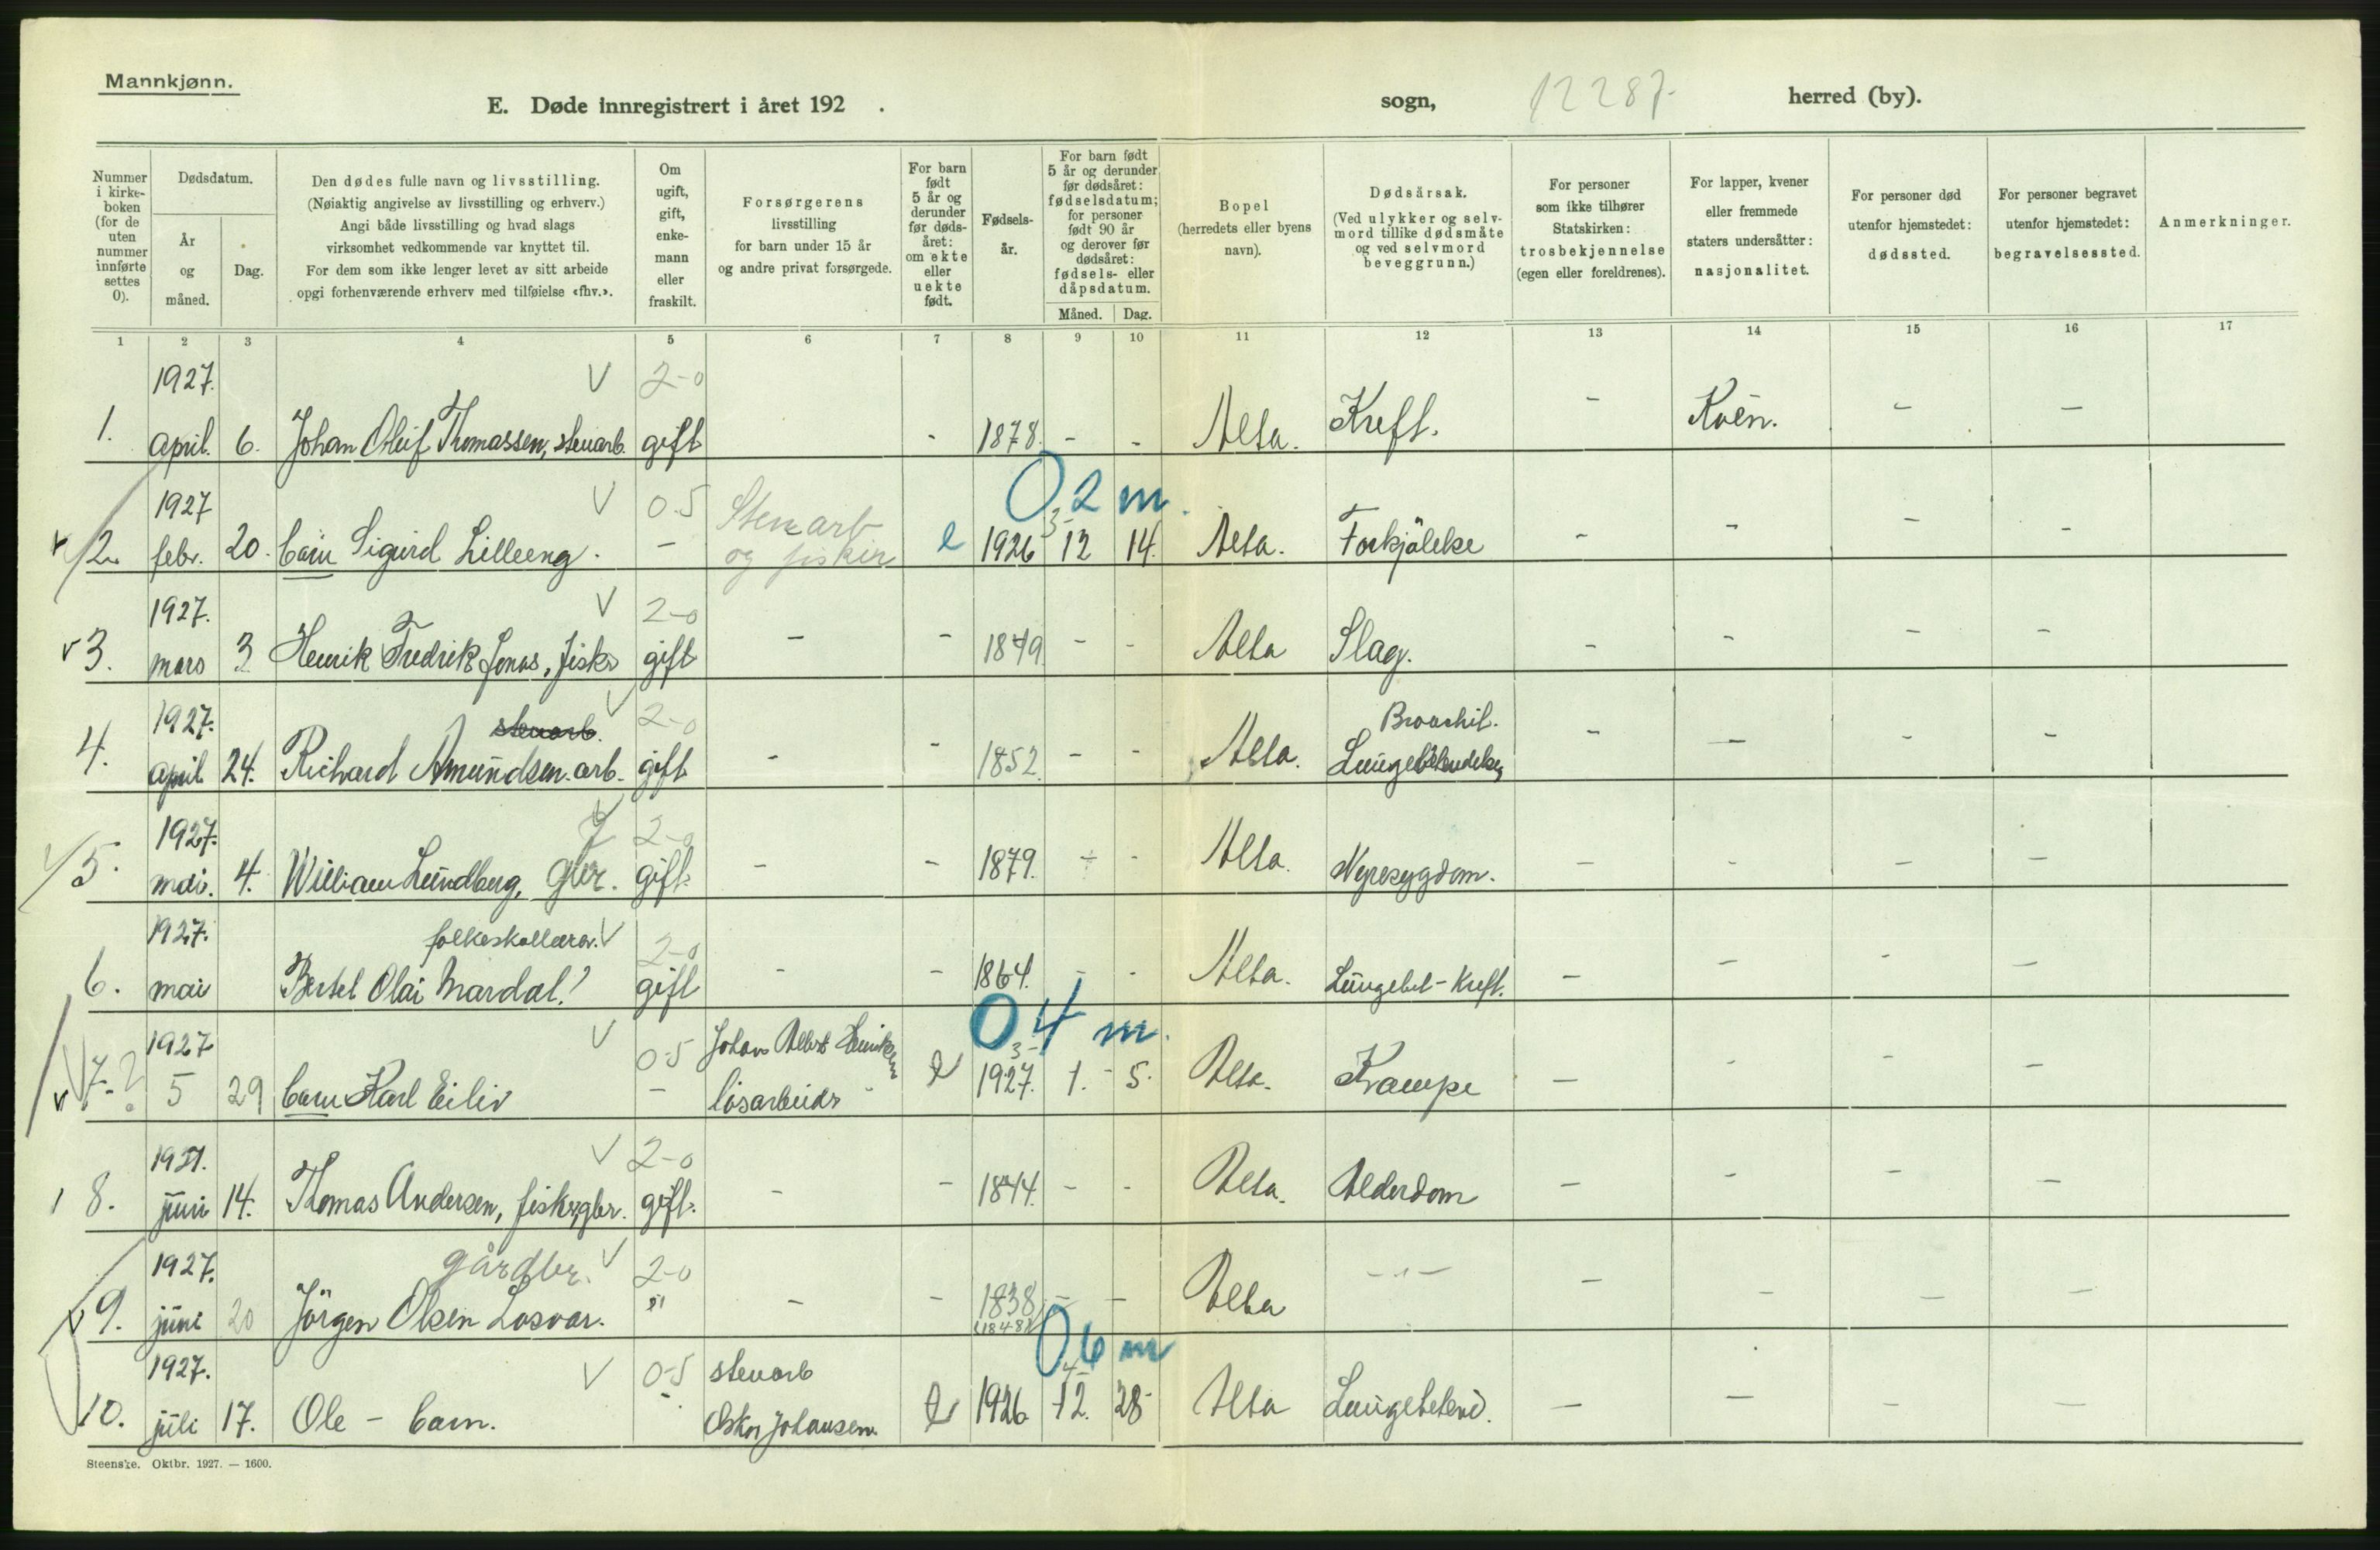 Mannkjønn.
E. Døde innregistrert i året 192 .
sogn,
12287-
herred (by).
Nummer i kirke-boken (for de uten nummer innførte settes 0).
Dødsdatum.
År og måned.
Dag.
Den dødes fulle navn og livsstilling.
(Nøiaktig angivelse av livsstilling og erhverv.)
Angi både livsstilling og hvad slags
virksomhet vedkommende var knyttet til.
For dem som ikke lenger levet av sitt arbeide
opgi forhenværende erhverv med tilføielse «fhv.».
Om ugift, gift, enke-mann eller fraskilt.
Forsørgerens
livsstilling
for barn under 15 år
og andre privat forsørgede.
For barn født 5 år og derunder før døds-året: om ekte eller uekte født.
Fødsels-år.
For barn født 5 år og derunder før dødsåret: fødselsdatum; for personer født 90 år og derover før dødsåret: fødsels- eller dåpsdatum.
Måned. Dag.
Bopel
(herredets eller byens navn).
Dødsårsak.
(Ved ulykker og selv-mord tillike dødsmåte og ved selvmord beveggrunn.)
For personer som ikke tilhører Statskirken: trosbekjennelse (egen eller foreldrenes).
For lapper, kvener eller fremmede staters undersåtter: nasjonalitet.
For personer død utenfor hjemstedet: dødssted.
For personer begravet utenfor hjemstedet: begravelsessted.
Anmerkninger.
1 2 3 4 5 6 7 8 9 10 11 12 13 14 15 16 17
1927. V 2-0
1. april. 6. Johan Oluf Thomassen, stenarb. gift - 1878. - - Alta. Kreft. - Kvèn. - -
0 2 m.
1927 V 0-5 Stenarb 3-
2. febr. 20. barn Sigurd Lilleeng. - og fisker e 1926 12 14. Alta. Forkjölelse - - - -
1927. V 2-0
v 3. mars 3 Henrik Fredrik Jonas, fisker gift - - 1849 - - Alta Slag. - - - -
1927. stenarb. V 2-0 Bronchit.
4. april 24. Richard Amundsen. arb. gift - - 1852. - - Alta. - - - -
1927. 2-0
5. mai. 4. William Lundberg, gbr. gift. - - 1879. - - Alta. Nyresygdom. - - - -
1927. folkeskollærer. V 2-0
6. mai Bertel Olai Mardal. gift - - 1864. - - Alta. Lungebet-Kreft. - - - -
0 4 m.
1927 V 0-5 Johan Albert Henriksen 3-
7-? 5 29 barn Karl Eiliv - lösarbeider e 1927. 1. 5. Alta. Krampe - - - -
1927. V 2-0
8. juni 14. Thomas Andersen, fisker, gbr. gift. - - 1844. - - Alta. Alderdom - - - -
1927. gårdbr. V 2-0
v 9. juni 20 Jörgen Olsen Losvar. " - - 1838 - - Alta - " - - - - -
(1848)
0 6 m
1927. V 0-5 stenarb 4-
10. juli 17. Ole - barn. - Oskar Johansen. e 1926 12. 28- Alta Lungebetend. - - - -
Steenske. Oktbr. 1927. — 1600.